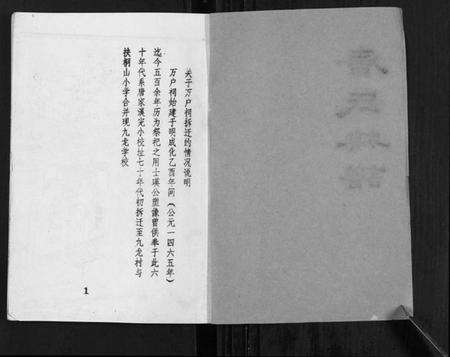 关于万户祠拆迁的情况说明
万户祠始建于明成化乙酉年间(公元一四六五年)
迄今五百余年历为祭祀之用士瑛公塑像曾供奉于此六
十年代系唐家溪完小校址七十年代初拆迁至九龙村与
扶桐山小学合并现九龙学校
1